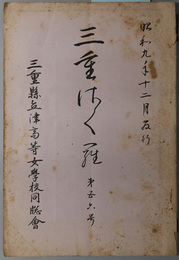 昭和九年十二月發行
三重桜く羅
第五六号
三重縣立津高等女學校同窓會